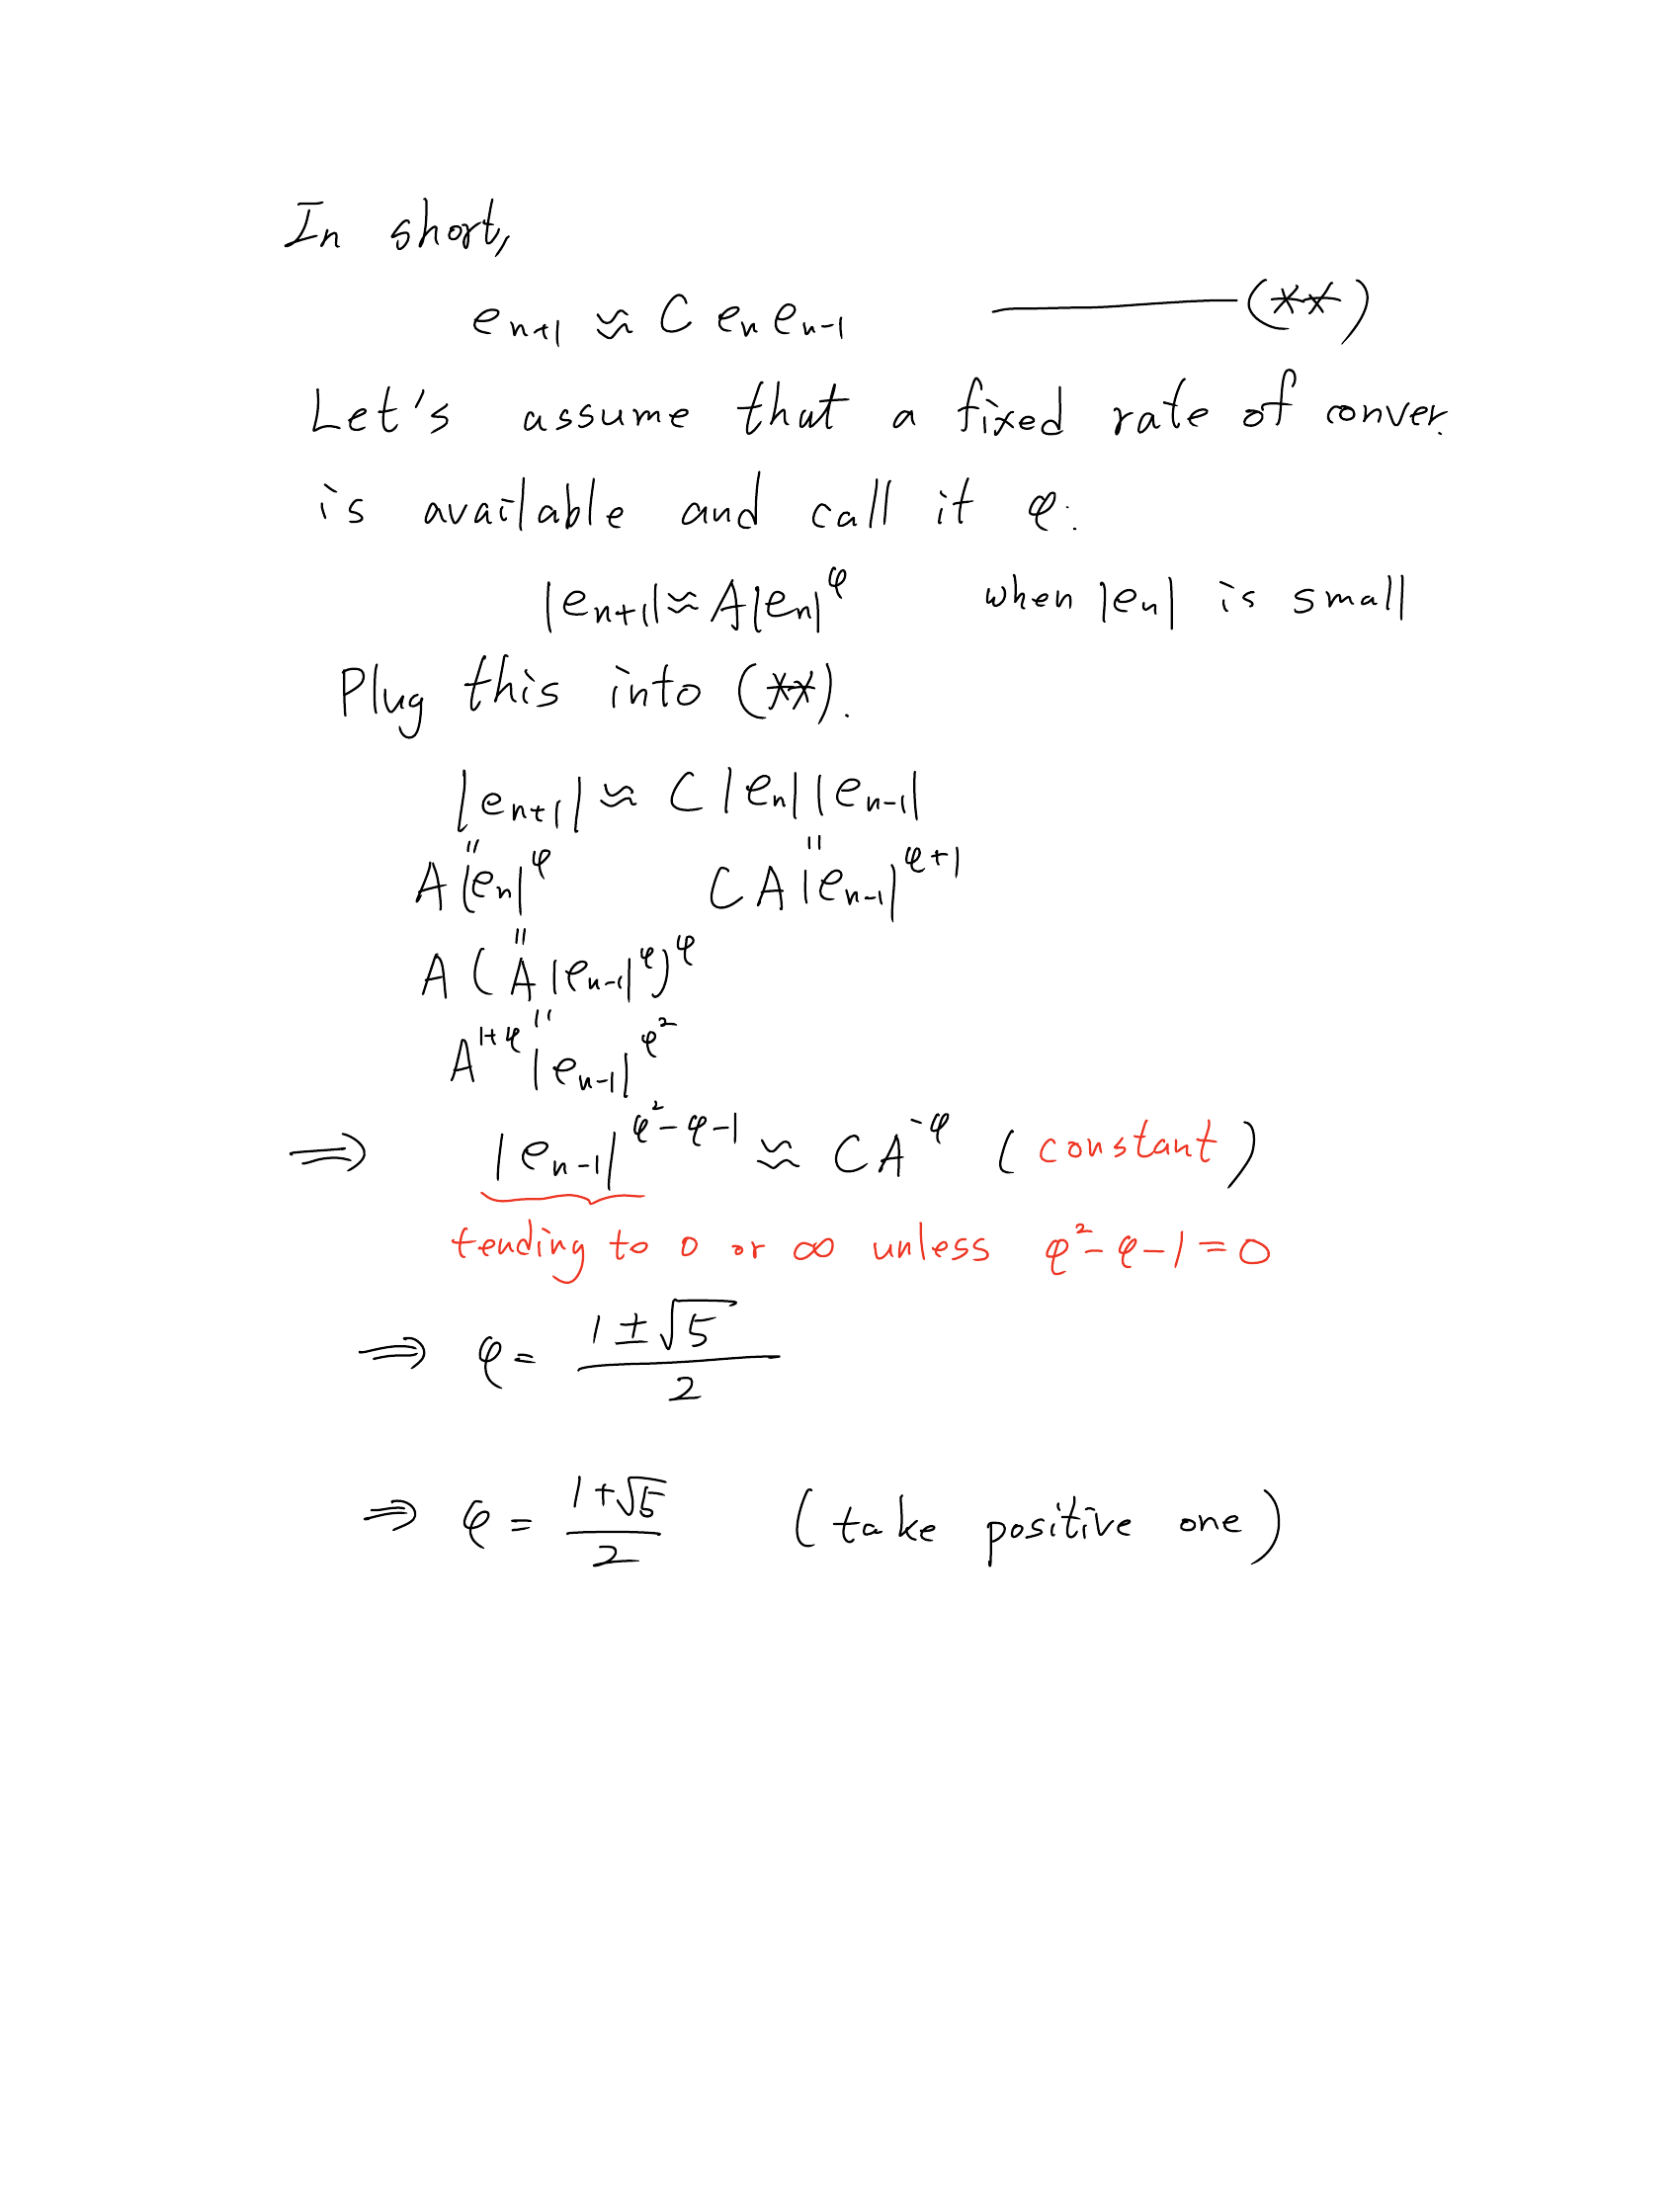 In short,
e_{n+1} ≈ C e_n e_{n-1} ——— (**)
Let's assume that a fixed rate of conver.
is available and call it φ.
|e_{n+1}| ≈ A|e_n|^φ when |e_n| is small
Plug this into (**).
|e_{n+1}| ≈ C |e_n| |e_{n-1}|
" "
A |e_n|^φ CA |e_{n-1}|^{φ+1}
"
A (A |e_{n-1}|^φ)^φ
"
A^{1+φ} |e_{n-1}|^{φ^2}
⇒ |e_{n-1}|^{φ^2-φ-1} ≈ CA^{-φ} (constant)
tending to 0 or ∞ unless φ^2-φ-1=0
⇒ φ = (1±√5)/2
⇒ φ = (1+√5)/2 (take positive one)